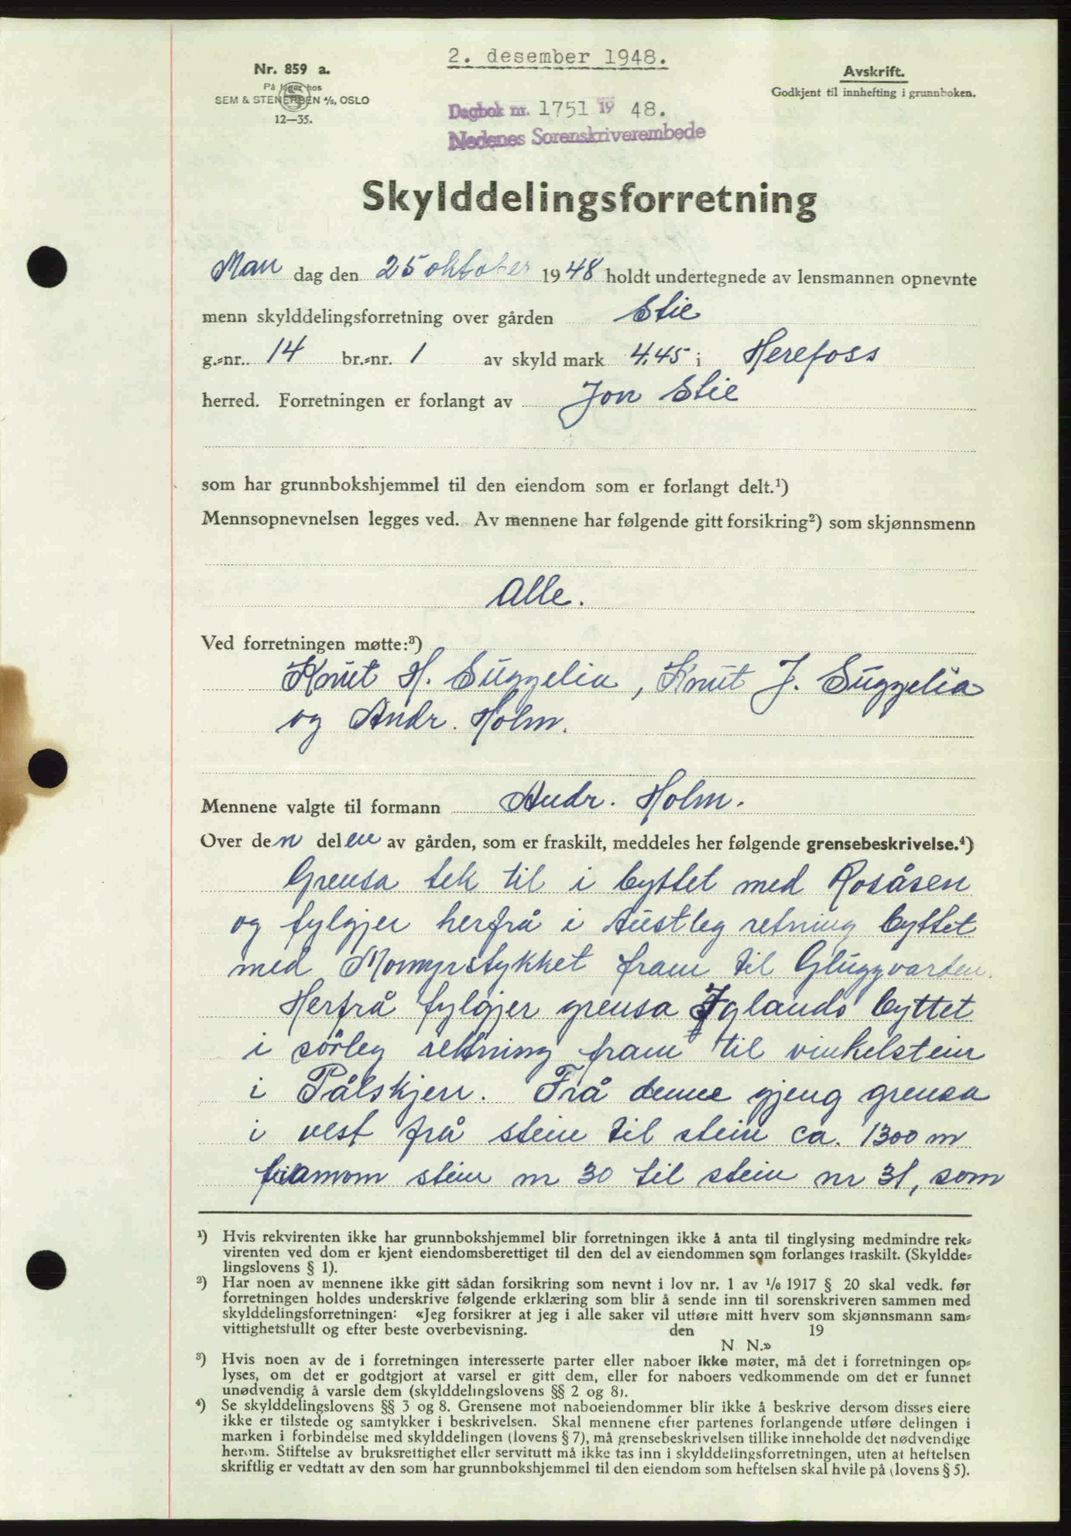 2. desember 1948.
Nr. 859 a.
På lager hos
SEM & STENERSEN A/S, OSLO
12—35.
Avskrift.
Godkjent til innhefting i grunnboken.
Dagbok nr. 1751 19 48.
Nedenes Sorenskriverembede
Skylddelingsforretning
Man dag den 25 oktober 1948 holdt undertegnede av lensmannen opnevnte
menn skylddelingsforretning over gården Stie
g.-nr.. 14 br.-nr. 1 av skyld mark 4.45 i Herefoss
herred. Forretningen er forlangt av Jon Stie
som har grunnbokshjemmel til den eiendom som er forlangt delt.¹)
Mennsopnevnelsen legges ved. Av mennene har følgende gitt forsikring²) som skjønnsmenn
Alle.
Ved forretningen møtte:³)
Knut H. Suggelia, Knut J. Suggelia
og Andr. Holm.
Mennene valgte til formann Andr. Holm.
Over den delen av gården, som er fraskilt, meddeles her følgende grensebeskrivelse.⁴)
Grensa tek til i byttet med Rosåsen
og fylgjer herfrå i austleg retning byttet
med Momyrstykket fram til Gluggvarden.
Herfrå fylgjer grensa Iglands byttet
i sörleg retning fram til vinkelstein
i Pålskjerr. Frå denne gjeng grensa
i vest frå stein til stein ca. 1300 m
stein nr 30 til stein nr 31, som
¹) Hvis rekvirenten ikke har grunnbokshjemmel blir forretningen ikke å anta til tinglysing medmindre rek-
virenten ved dom er kjent eiendomsberettiget til den del av eiendommen som forlanges fraskilt. (Skyldde-
lingslovens § 1).
²) Har noen av mennene ikke gitt sådan forsikring som nevnt i lov nr. 1 av 1/6 1917 § 20 skal vedk. før
forretningen holdes underskrive følgende erklæring som blir å sende inn til sorenskriveren sammen med
skylddelingsforretningen: «Jeg forsikrer at jeg i alle saker vil utføre mitt hverv som skjønnsmann sam-
vittighetsfullt og efter beste overbevisning. den 19
N N.»
³) Hvis noen av de i forretningen interesserte parter eller naboer ikke møter, må det i forretningen op-
lyses, om det er godtgjort at varsel er gitt dem, eller for naboers vedkommende om det er funnet
unødvendig å varsle dem (skylddelingslovens §§ 2 og 8).
⁴) Se skylddelingslovens §§ 3 og 8. Grensene mot naboeiendommer blir ikke å beskrive dersom disses eiere
ikke er tilstede og samtykker i beskrivelsen. Skal mennene efter partenes forlangende utføre delingen i
marken i forbindelse med skylddelingen (lovens § 7), må grensebeskrivelsen tillike inneholde det nødvendige
herom. Stiftelse av bruksrettighet eller servitutt må ikke tas inn i skylddelingsforretningen, uten at heftelsen
skriftlig er vedtatt av den som har grunnbokshjemmel til den eiendom som heftelsen skal hvile på (lovens § 5).